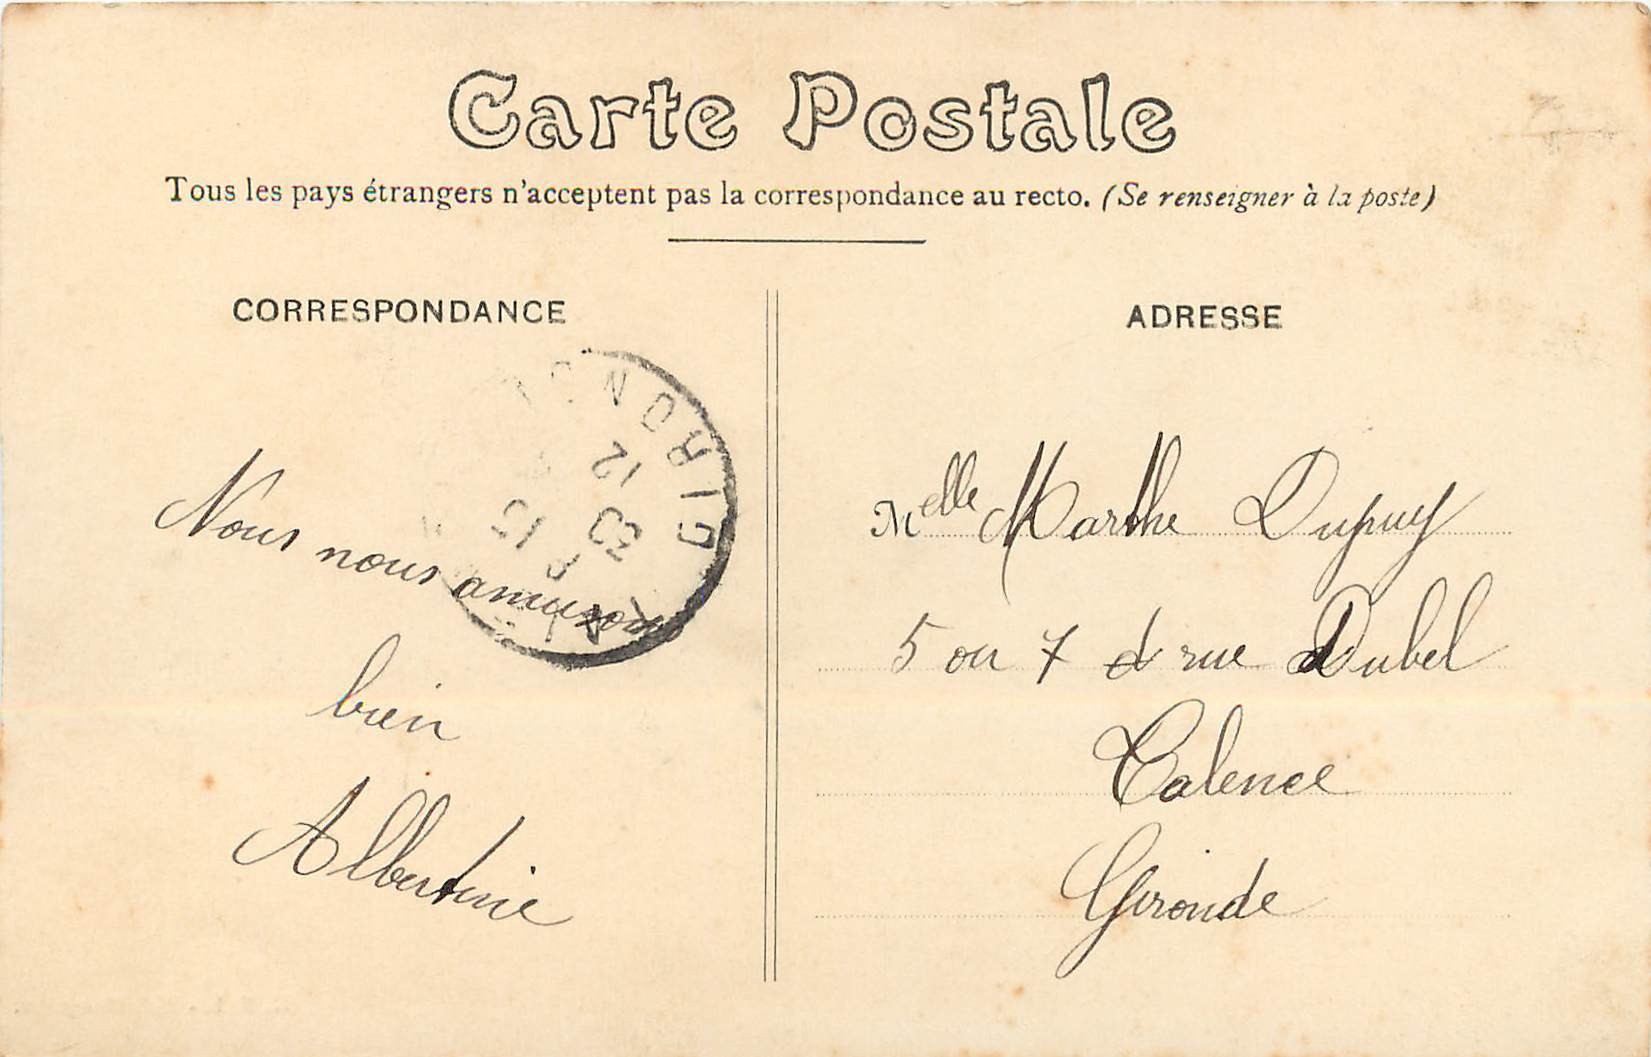 Carte Postale
Tous les pays étrangers n'acceptent pas la correspondance au recto. (Se renseigner à la poste)
CORRESPONDANCE
Nous nous amusons
bien
Albertine
GIRONDE
12
ADRESSE
Melle Marthe Dupuy
5 ou 7 rue Dubel
Talence
Gironde